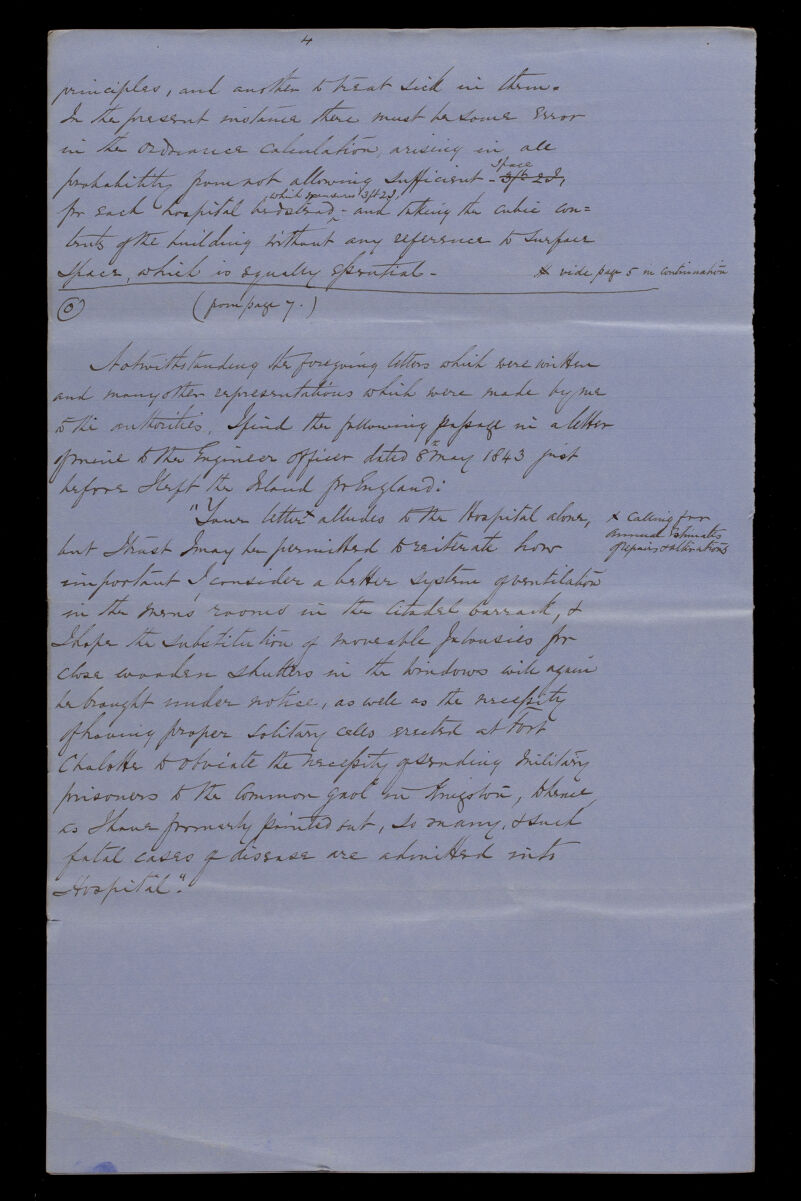 4
principles, and another to treat sick in them.
In the present instance there must be some Error
in the Ordnance calculation, arising in all
probability from not allowing sufficient - space 3ft 2I,
for each hospital bedstead - which measures 3ft 2I, and taking the cubic con=
tents of the building without any reference to surface
space, which is equally essential - 
x vide page 5 in continuation
(0) (from page 7.)
Notwithstanding the foregoing letters which were written
and many other representations which were made by me
to the authorities, I find the following passage in a letter
of mine to the Engineer Officer dated 8th May 1843 just
before I left the Island for England:
"Your letter x alludes to the Hospital alone,
x Calling for
annual Estimates
of repairs & alterations
but I trust I may be permitted to reiterate how
important I consider a better system of ventilation
in the men's rooms in the Citadel barrack, &
I hope the substitution of moveable Jalousies for
close wooden shutters in the windows will again
be brought under notice, as well as the necessity
of having proper solitary cells erected at Fort
Charlotte to obviate the necessity of sending Military
prisoners to the Common gaol in Kingston, whence
as I have formerly pointed out, so many, & such
fatal cases of disease are admitted into
Hospital".